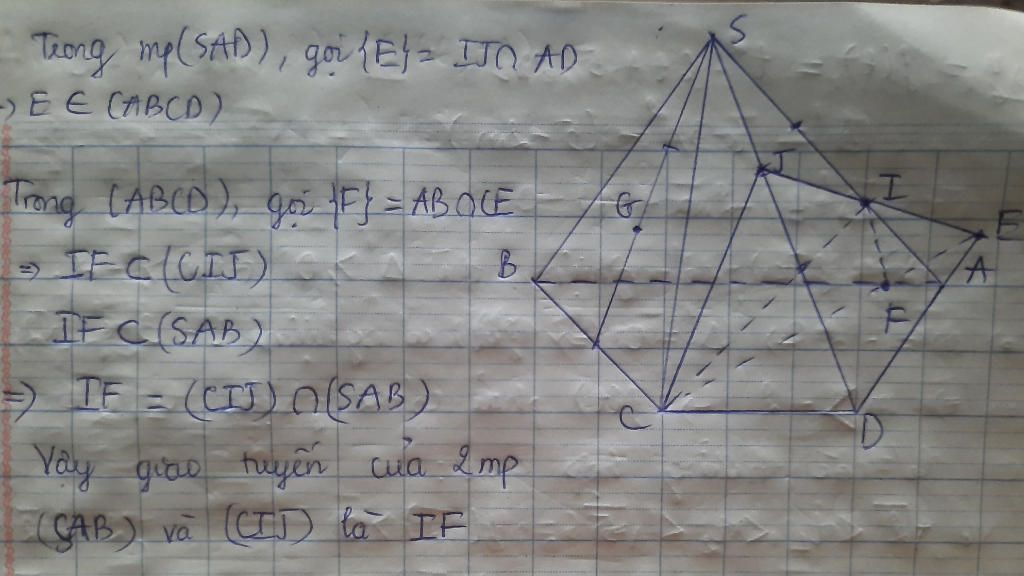 Trong mp(SAD), gọi {E} = IJ∩ AD
=> E ∈ (ABCD)
Trong (ABCD), gọi {F} = AB∩CE
=> IF ⊂ (CIJ)
IF ⊂ (SAB)
=> IF = (CIJ) ∩ (SAB)
Vậy giao tuyến của 2mp
(SAB) và (CIJ) là IF
S
J
I
G
E
B
A
F
C
D